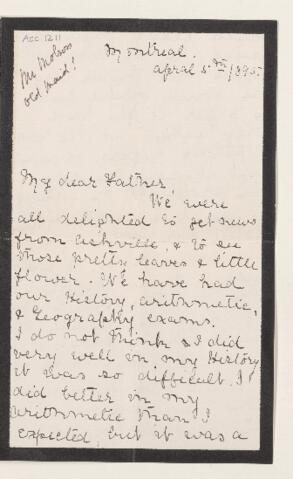 Acc 1211
Mr Molson
old maid!
Montreal.
April 5th 1895.
My dear Father,
We were
all delighted to get news
from Ashville, & to see
those pretty leaves & little
flower. We have had
our History, arithmetic,
& Geography exams.
I do not think I did
very well in my History
it was so difficult. I
did better in my
arithmetic than I
expected, but it was a